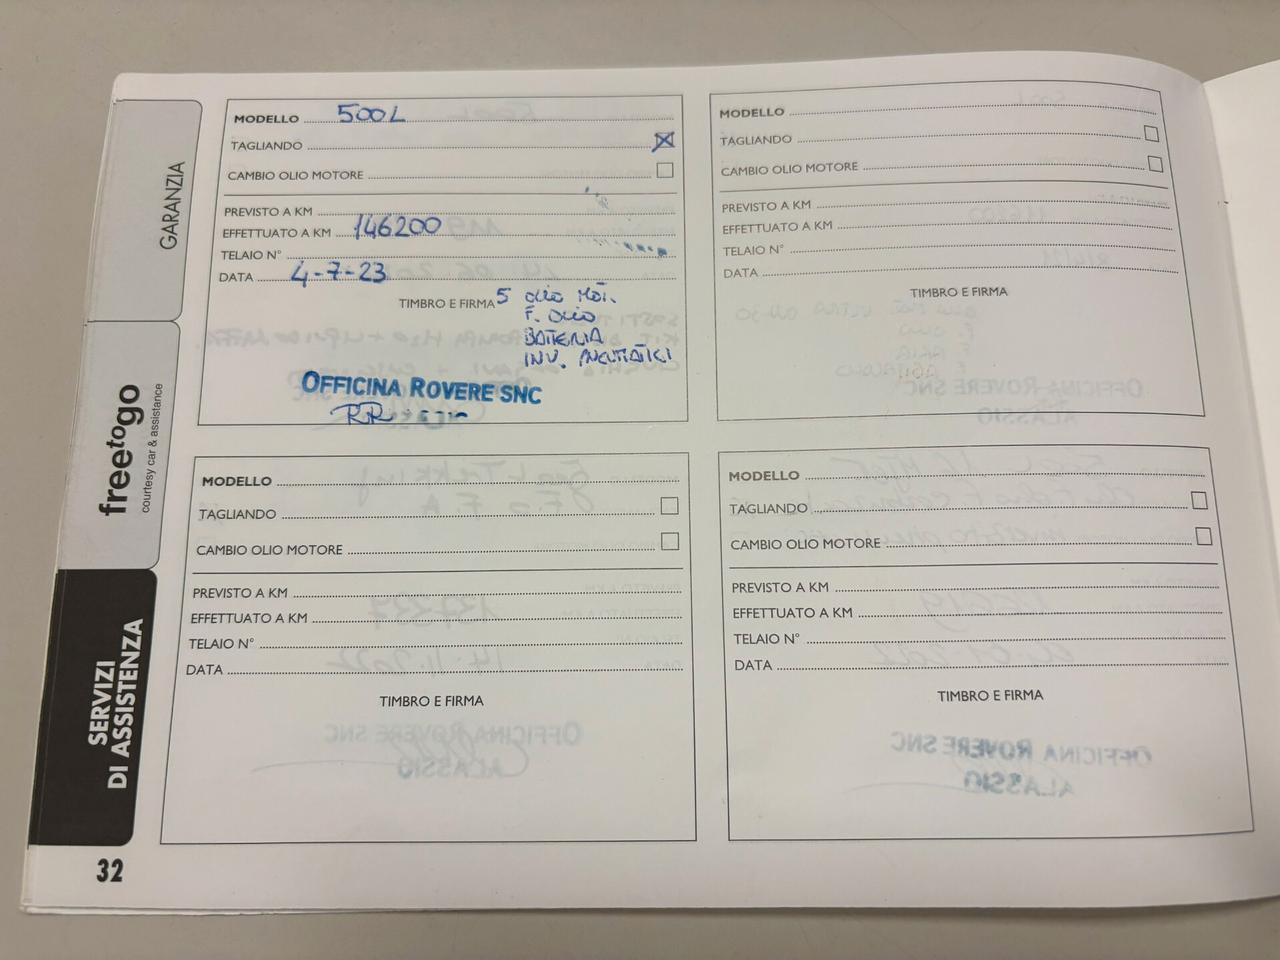 GARANZIA
freetogo
courtesy car & assistance
SERVIZI
DI ASSISTENZA
32
MODELLO 500L
TAGLIANDO
CAMBIO OLIO MOTORE
PREVISTO A KM
EFFETTUATO A KM 146200
TELAIO N°
DATA 4-7-23
TIMBRO E FIRMA 5 OLIO MOT.
F. OLIO
BATTERIA
INV. PNEUMATICI
OFFICINA ROVERE SNC
MODELLO
TAGLIANDO
CAMBIO OLIO MOTORE
PREVISTO A KM
EFFETTUATO A KM
TELAIO N°
DATA
TIMBRO E FIRMA
MODELLO
TAGLIANDO
CAMBIO OLIO MOTORE
PREVISTO A KM
EFFETTUATO A KM
TELAIO N°
DATA
TIMBRO E FIRMA
MODELLO
TAGLIANDO
CAMBIO OLIO MOTORE
PREVISTO A KM
EFFETTUATO A KM
TELAIO N°
DATA
TIMBRO E FIRMA